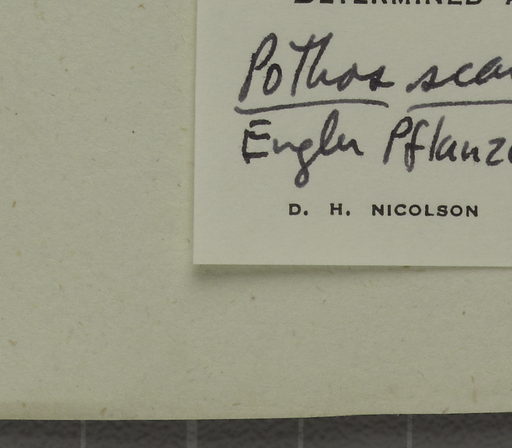 DETERMINED
Pothos scan
Engler Pflanze
D. H. NICOLSON